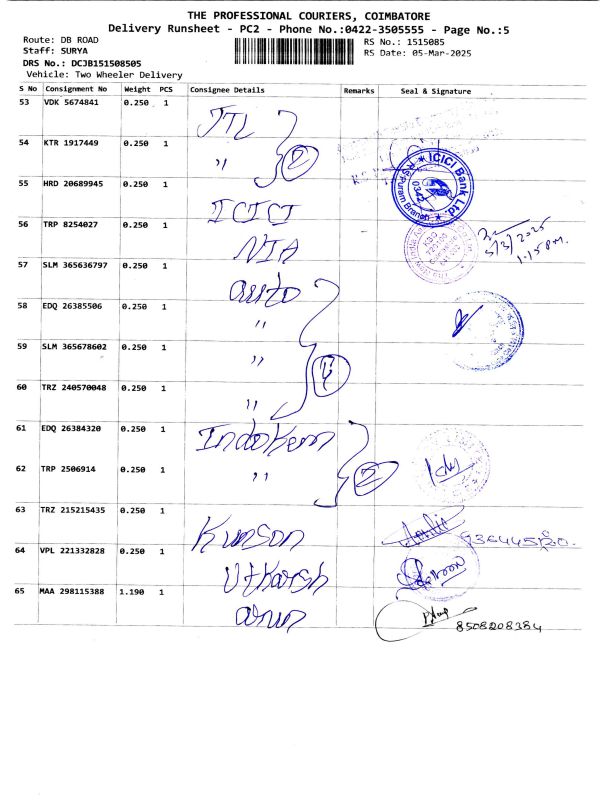 THE PROFESSIONAL COURIERS, COIMBATORE
Delivery Runsheet - PC2 - Phone No.:0422-3505555 - Page No.:5
Route: DB ROAD
RS No.: 1515085
Staff: SURYA
RS Date: 05-Mar-2025
DRS No.: DCJB151508505
Vehicle: Two Wheeler Delivery
S No Consignment No Weight PCS Consignee Details Remarks Seal & Signature
53 VDK 5674841 0.250 1 JTL
54 KTR 1917449 0.250 1 " 2
55 HRD 20689945 0.250 1 ICICI
ICICI Bank Ltd
R.S.Puram Branch
0342
56 TRP 8254027 0.250 1 NIA
5/3/2025
1.15PM.
57 SLM 365636797 0.250 1 auto
58 EDQ 26385506 0.250 1 "
59 SLM 365678602 0.250 1 " 4
60 TRZ 240570048 0.250 1 "
61 EDQ 26384320 0.250 1 Indokem
62 TRP 2506914 0.250 1 " 2
63 TRZ 215215435 0.250 1 Kunson
64 VPL 221332828 0.250 1 Utkarsh
65 MAA 298115388 1.190 1 arun
8508208384